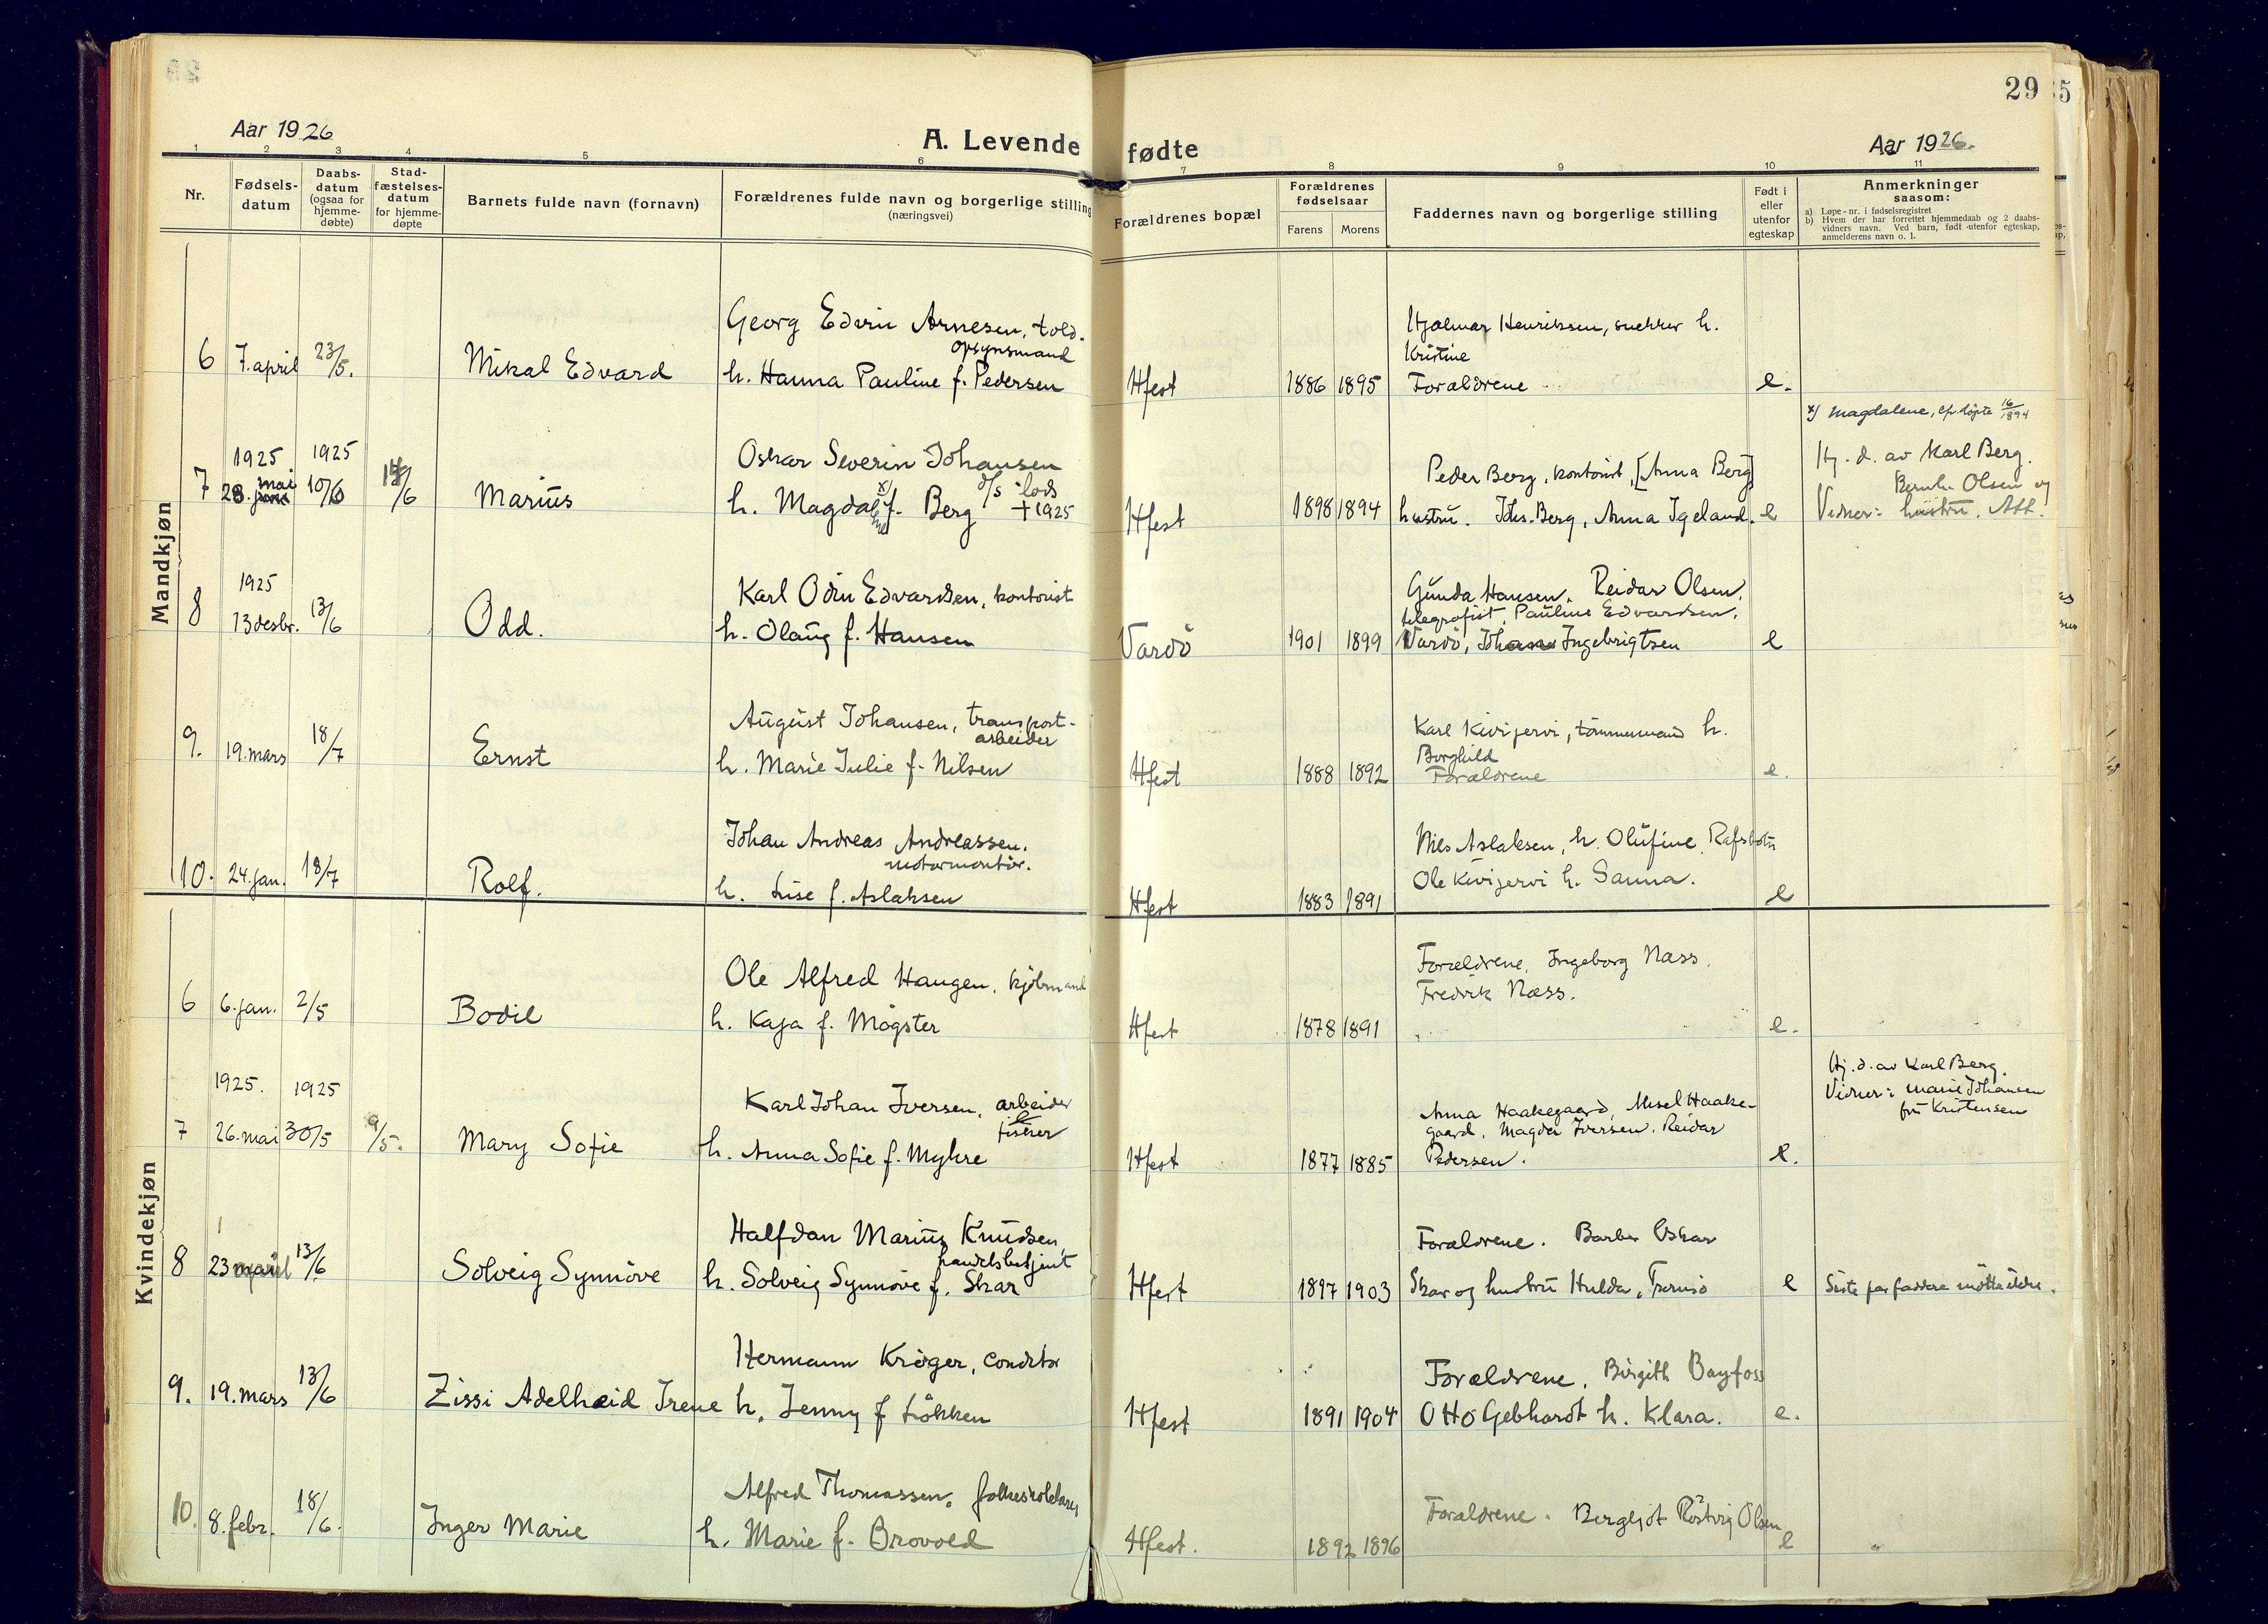 29
Aar 1926
A. Levende fødte
Aar 1926.
1 2 3 4 5 6 7 8 9 10 11
Nr.
Fødsels-
datum
Daabs-
datum
(ogsaa for
hjemme-
døbte)
Stad-
fæstelses-
datum
for hjemme-
døpte
Barnets fulde navn (fornavn)
Forældrenes fulde navn og borgerlige stilling
(næringsvei)
Forældrenes bopæl
Forældrenes
fødselsaar
Farens Morens
Faddernes navn og borgerlige stilling
Født i
eller
utenfor
egteskap
Anmerkninger
saasom:
a) Løpe-nr. i fødselsregistret
b) Hvem der har forrettet hjemmedaab og 2 daabs-
vidners navn. Ved barn, født utenfor egteskap,
anmelderens navn o. l.
Mandkjøn
Georg Edvin Arnesen, told-
opsynsmand
6 7. april 23/5. Mikal Edvard h. Hanna Pauline f. Pedersen
Hjalmar Henrikssen, snekker h.
Kristine
Hfest 1886 1895 Forældrene e.
x) Magdalene, 16/1894
1925 1925 Oskar Severin Johansen
d/s lods
7 28. mai 10/6 14/6 Marius h. Magdalene x) f. Berg † 1925
Peder Berg, kontorist, [Anna Berg]
Hfest 1898 1894 hustru. Johs. Berg, Anna Igeland. e
Hj. d. av Karl Berg.
Bernh. Olsen og
Vidner: hustru.
1925 Karl Odin Edvardsen, kontorist
8 13 desbr. 13/6 Odd. h. Olaug f. Hansen
Gunda Hansen. Reidar Olsen,
telegrafist, Pauline Edvardsen,
Vardö 1901 1899 Vardö, Ingebrigtsen e
August Johansen, transport-
arbeider
9. 19. mars 18/7 Ernst h. Marie Julie f. Nilsen
Karl Kivijervi, tömmermand h.
Borghild
Hfest 1888 1892 Forældrene e.
Johan Andreas Andreassen.
motormontör.
10. 24. jan. 18/7 Rolf. h. Lise f. Aslaksen
Nils Aslaksen, h. Olufine, Rafsbotn
Ole Kivijervi h. Sanna.
Hfest 1883 1891 e
Kvindekjøn
Ole Alfred Haugen, kjöbmand
6 6. jan. 2/5 Bodil h. Kaja f. Mögster
Forældrene, Ingeborg Næss,
Fredrik Næss.
Hfest 1878 1891 e.
1925. 1925 Karl Johan Iversen, arbeider
fisker
7 26. mai 30/5 9/5. Mary Sofie h. Anna Sofie f. Myhre
Anna Haakegaard, Haake-
gaard, Magda Iversen. Reidar
Hfest 1877 1885 Pedersen. e.
Hj. d. av Karl Berg.
Vidner: Marie Johansen
fru Kristensen
Halfdan Marius Knudsen,
handelsbetjent
8 23 13/6 Solveig Synnöve h. Solveig Synnöve f. Skar
Forældrene. Barber Oskar
Hfest 1897 1903 Skar og hustru Hulda, Tromsö e Siste par faddere mötte ikke.
Hermann Kröger, conditor
9. 19. mars 13/6 Zissi Adelheid Irene h. Jenny f Lökken
Forældrene, Birgith Bayfoss
Hfest 1891 1904 Otto Gebhardt h. Klara. e.
Alfred Thomassen, folkeskolelærer
10. 8. febr. 18/6. Inger Marie h. Marie f. Brovold
Forældrene. Bergljot Röstvig Olsen
Hfest. 1892 1896 e